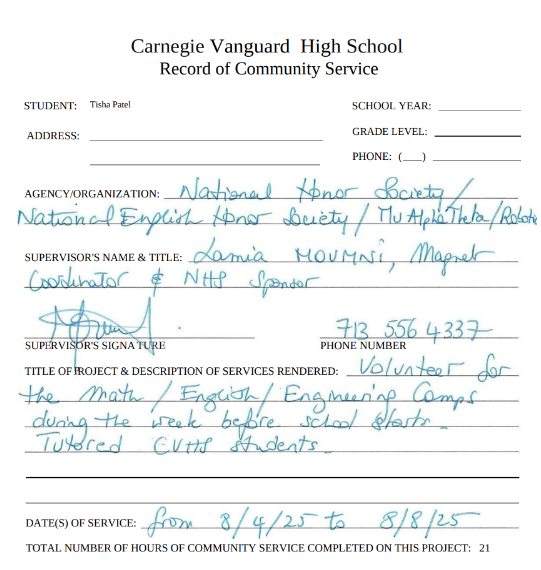 Carnegie Vanguard High School
Record of Community Service
STUDENT: Tisha Patel SCHOOL YEAR:
ADDRESS: GRADE LEVEL:
PHONE: ( )
AGENCY/ORGANIZATION: National Honor Society /
National English Honor Society / Mu Alpha Theta / Robotic
SUPERVISOR'S NAME & TITLE: Lamia MOUMNI, Magnet
Coordinator & NHS Sponsor
713 556 4337
SUPERVISOR'S SIGNATURE PHONE NUMBER
TITLE OF PROJECT & DESCRIPTION OF SERVICES RENDERED: Volunteer for
the Math / English / Engineering Camps
during the week before school starts.
Tutored CVHS students.
DATE(S) OF SERVICE: from 8/4/25 to 8/8/25
TOTAL NUMBER OF HOURS OF COMMUNITY SERVICE COMPLETED ON THIS PROJECT: 21